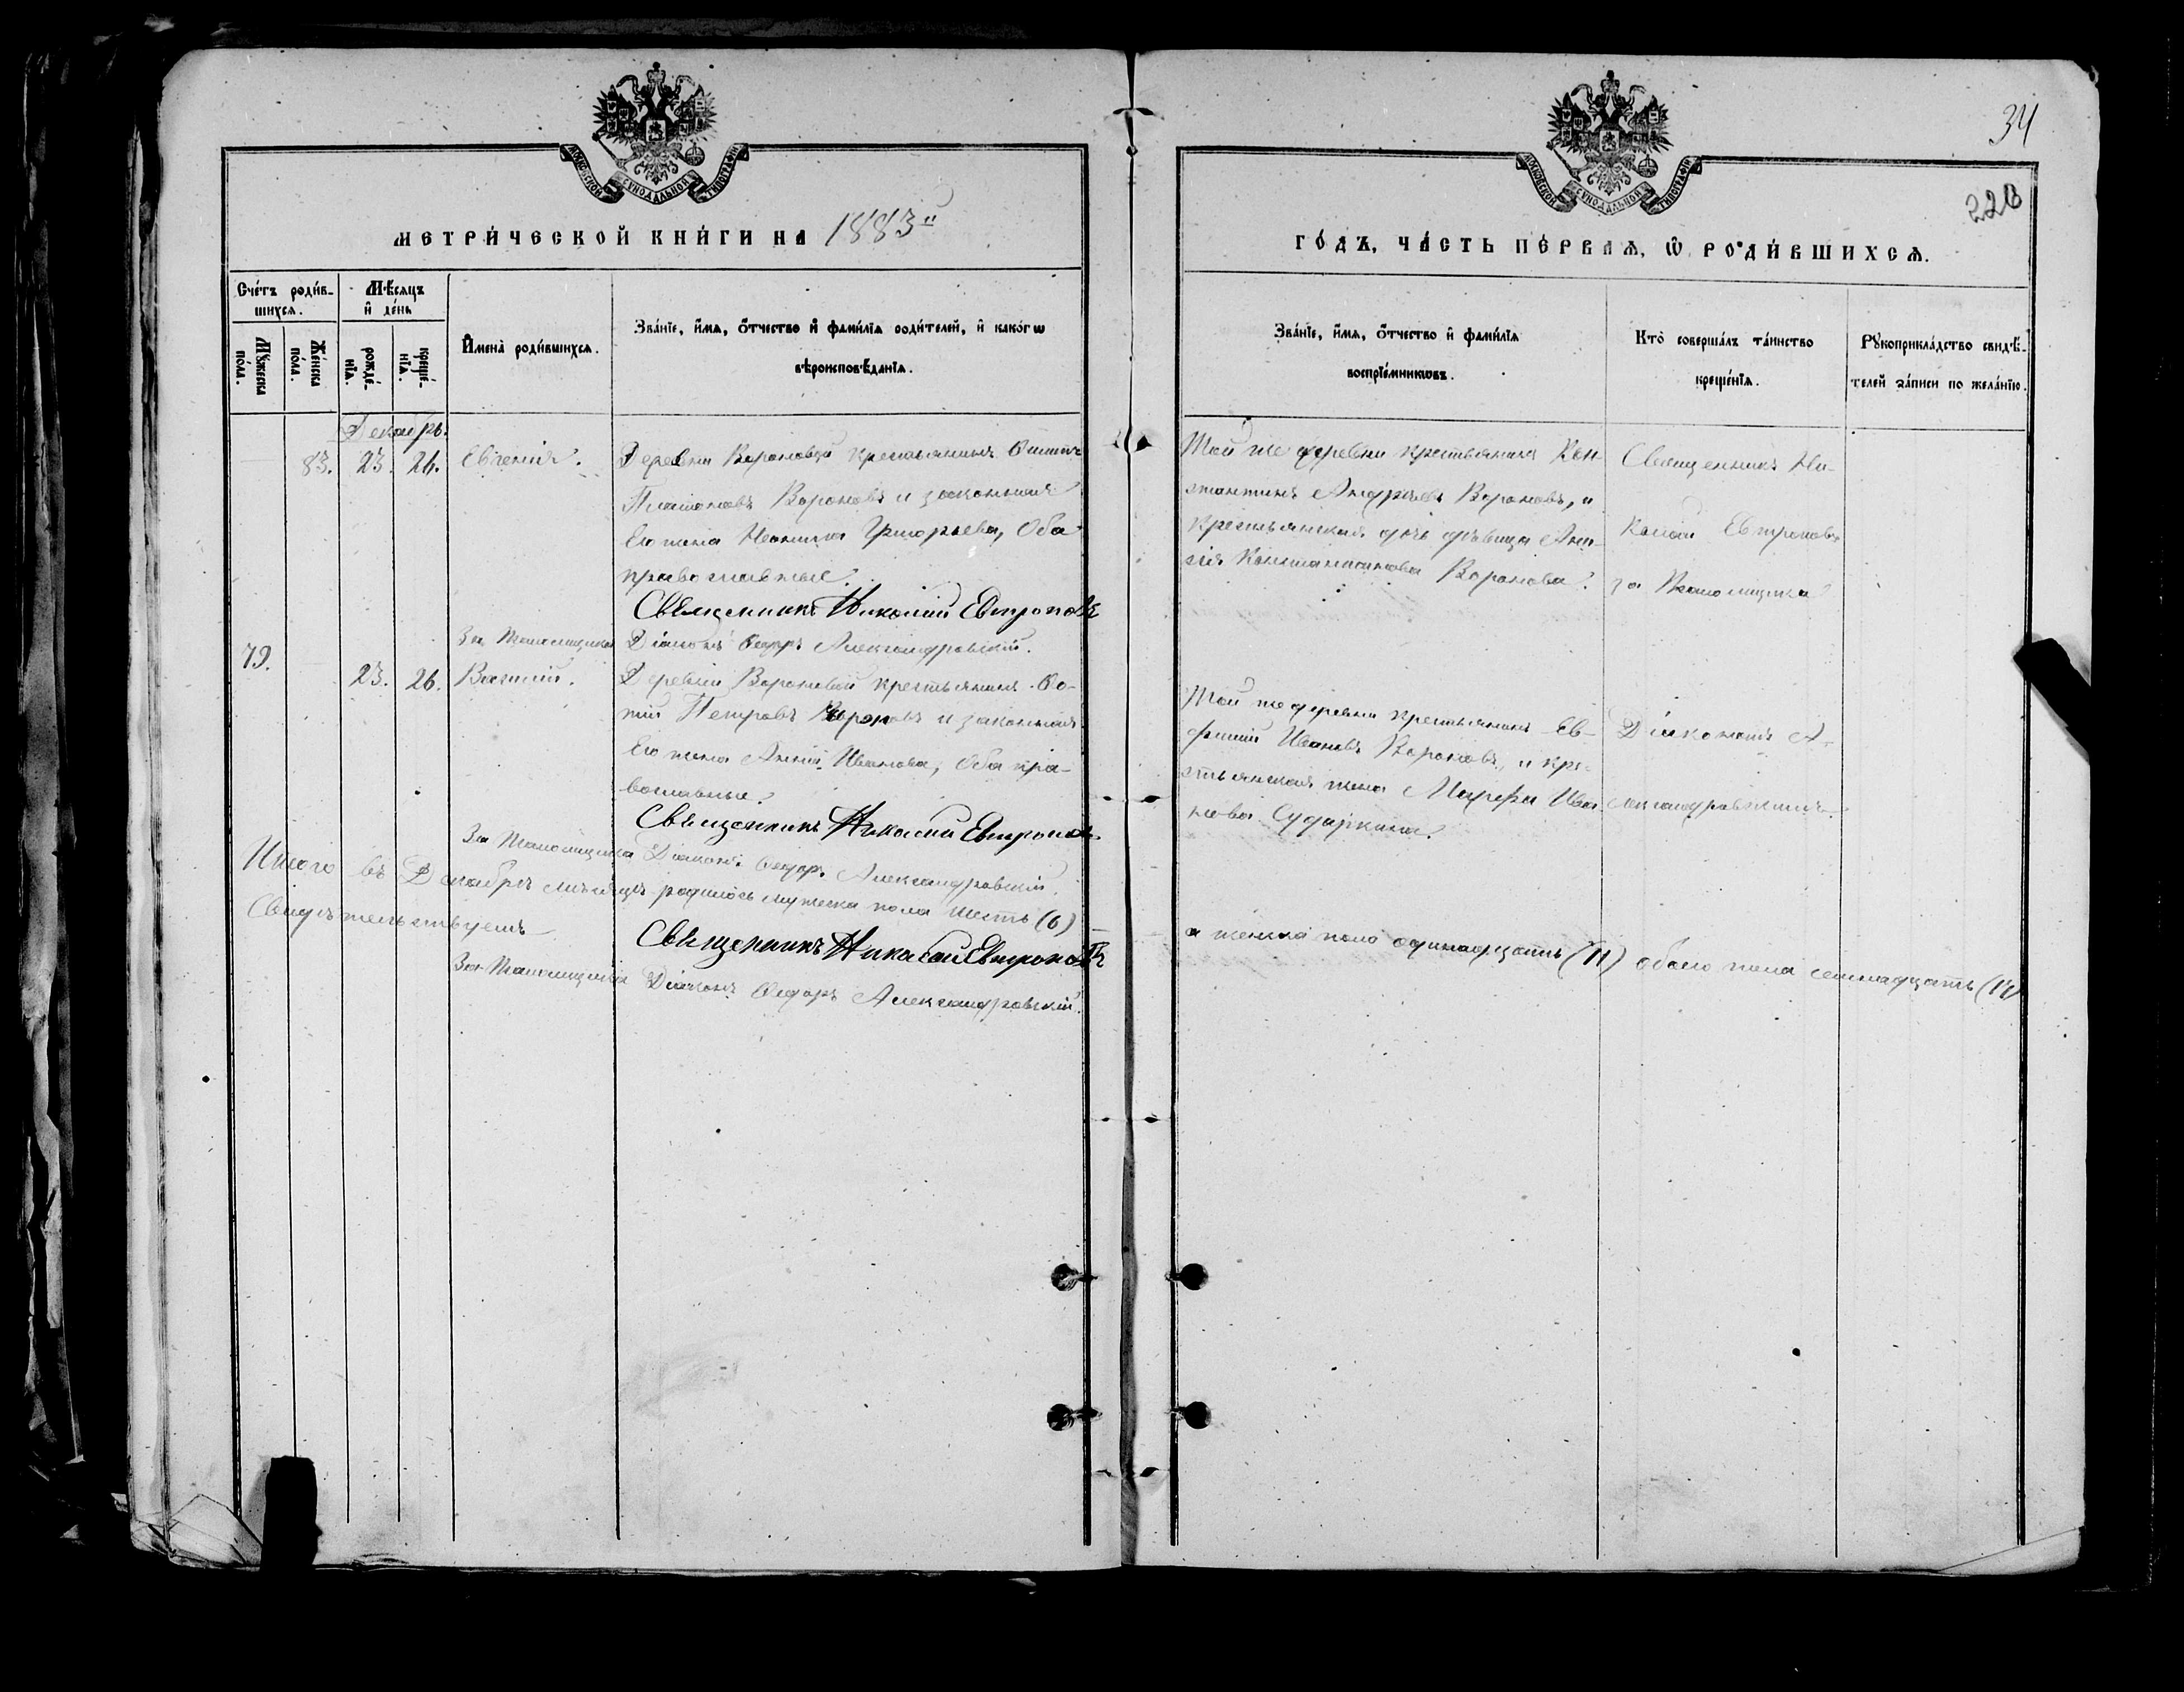 34
226
МОСКОВСКОЙ СѴНОДАЛЬНОЙ ТИПОГРАФІИ
МОСКОВСКОЙ СѴНОДАЛЬНОЙ ТИПОГРАФІИ
МЕТРИ́ЧЕСКОЙ КНИ́ГИ НА 1883й
ГО́ДЪ, ЧА́СТЬ ПЕ́РВАѦ, Ѡ РОДИ́ВШИХСѦ.
Сче́тъ роди́в-
шихся.
Мꙋ́жеска по́ла.
Же́нска по́ла.
Мѣ́сяцъ
и҆ де́нь
рожде́-
нїѧ.
креще́-
нїѧ.
И҆мена̀ роди́вшихся.
Зва́нїе, и҆́мя, ѻ҆́тчество и҆ фами́лїя роди́телей, и҆ како́гѡ
вѣроисповѣ́данїя.
Зва́нїе, и҆́мя, ѻ҆́тчество и҆ фами́лїя
воспрїе́мникѡвъ.
Кто̀ соверша́лъ та́инство
креще́нїя.
Рꙋкоприкла́дство свидѣ́-
телей за́писи по жела́нїю.
Декабрь.
83. 23. 26. Евгенія.
Деревни Вороновой крестьянинъ
Платоновъ Вороновъ и законная
Его жена Григорьева, Оба
православные.
Священникъ Николай Евтроповъ
За Діаконъ Ѳедоръ Александровскій.
Той же деревни крестьянинъ Кон-
стантинъ Андреевъ Вороновъ, и
крестьянская дочь дѣвица Ани-
сія Константинова Воронова.
Священникъ Ни-
колай Евтроповъ
за
79. 23. 26. Василій.
Деревни Вороновой крестьянинъ Ѳо-
тій Петровъ Вороновъ и законная
Его жена Анна Иванова, Оба пра-
вославные.
Священникъ Николай Евтроповъ
За Діаконъ Ѳедоръ Александровскій.
Той же деревни крестьянинъ Ев-
фимій Ивановъ Вороновъ, и кре-
стьянская жена Марфа Ива-
нова Сударкина.
Діаконъ А-
лександровскій
Итого въ Декабрѣ мѣсяцѣ родилось мужеска пола шесть (6)
а женска пола одинадцать (11) обоего пола семнадцать (17)
Свидѣтельствуемъ
Священникъ Николай Евтроповъ
За Діаконъ Ѳедоръ Александровскій.